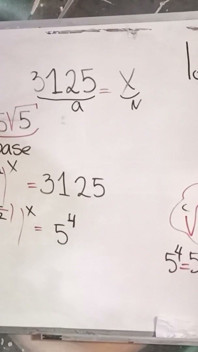 3125 = x
a N
5√5
base
)^x = 3125
)^x = 5^4
5^4=5